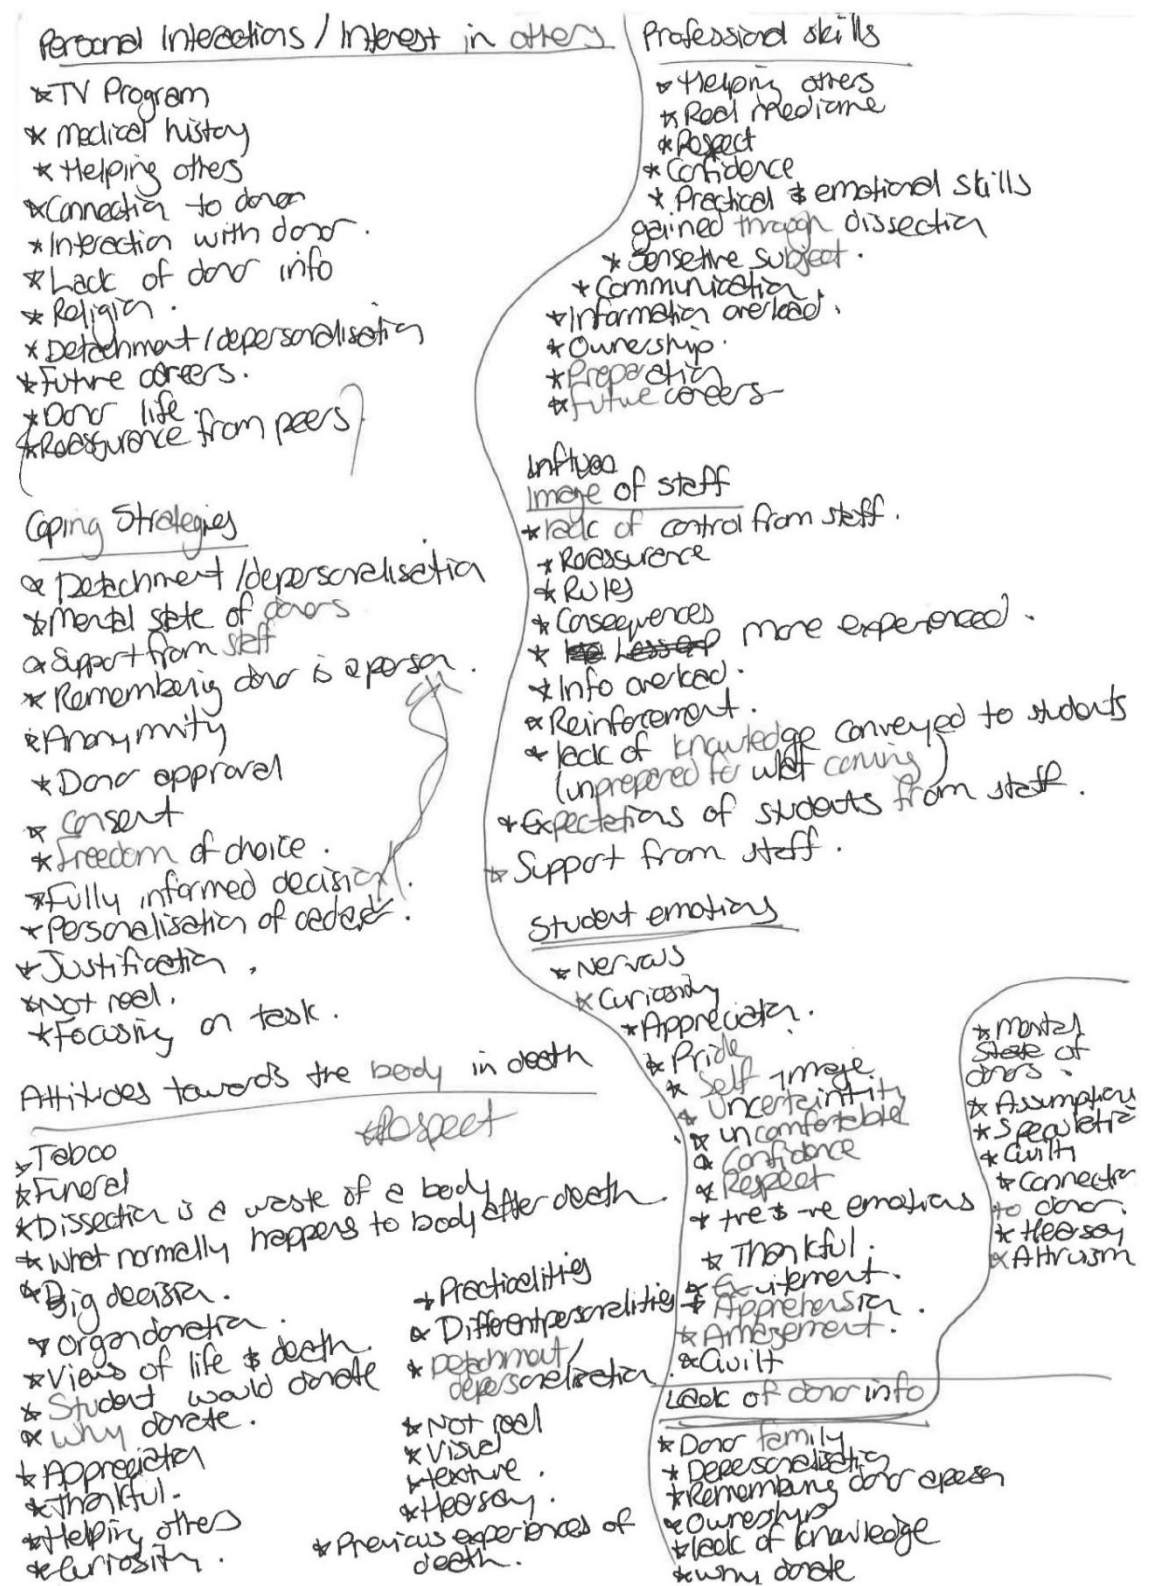 Personal Interactions / Interest in others
* TV Program
* medical history
* Helping others
* Connection to donor
* Interaction with donor.
* Lack of donor info
* Religion.
* Detachment / depersonalisation
* Future careers.
* Donor life.
* Reassurance from peers
Coping Strategies
* Detachment / depersonalisation
* Mental state of donors
* Support from staff
* Remembering donor is a person.
* Anonymity
* Donor approval
* consent
* freedom of choice.
* Fully informed decision.
* Personalisation of cadaver.
* Justification.
* Not real.
* Focusing on task.
Attitudes towards the body in death
* Respect
* Taboo
* Funeral
* Dissection is a waste of a body
* what normally happens to body after death.
* Big decision.
* organ donation.
* Views of life & death.
* Student would donate
* why donate.
* Appreciation
* Thankful.
* Helping others
* Curiosity.
* Practicalities
* Different personalities
* Detachment /
depersonalisation
* Not real
* Visual
* texture.
* Hearsay.
* Previous experiences of
death.
Professional skills
* Helping others
* Real medicine
* Respect
* Confidence
* Practical & emotional skills
gained through dissection
* Sensetive subject.
* Communication.
* Information overload.
* Ownership.
* Preparation
* future careers
Image of staff
* lack of control from staff.
* Reassurance
* Rules
* Consequences
* more experienced.
* Info overload.
* Reinforcement.
* lack of knowledge conveyed to students
(unprepared for what coming)
* Expectations of students from staff.
* Support from staff.
Student emotions
* Nervous
* Curiosity
* Appreciation.
* Pride
* Self image
* Uncertaintity
* uncomfortable
* Confidence
* Respect
* +ve & -ve emotions
* Thankful.
* Excitement.
* Apprehension.
* Amazement.
* Guilt
Lack of donor info
* Donor family
* Depersonalisation
* Remembering donor a person
* Ownership
* lack of knowledge
* why donate
* Mental
State of
donors.
* Assumption
* Speculation
* Guilt
* Connection
to donor.
* Hearsay
* Altruism